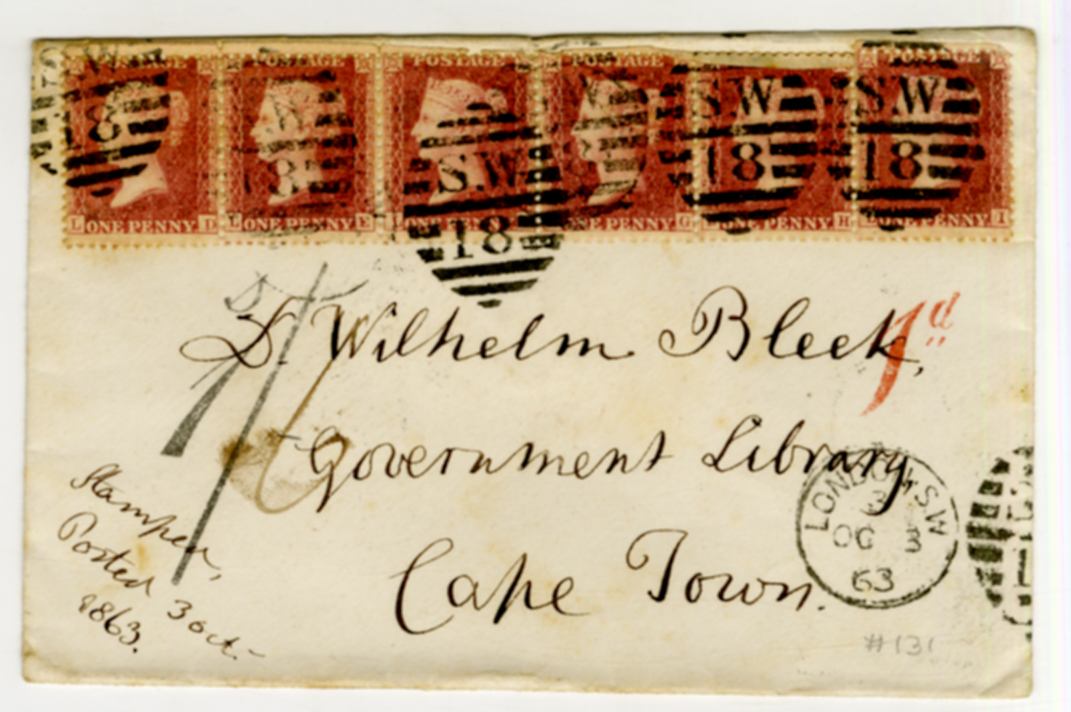 POSTAGE POSTAGE POSTAGE POSTAGE
S.W S.W S.W
18 18 18
L ONE PENNY D L ONE PENNY E ONE PENNY ONE PENNY G ONE PENNY H I
S.W
18
Dr. Wilhelm Bleek,
1d
1/6
Government Library,
Cape Town.
LONDON.S.W
3
OC 3
63
Stamper,
Posted 3 Oct.
1863.
#131